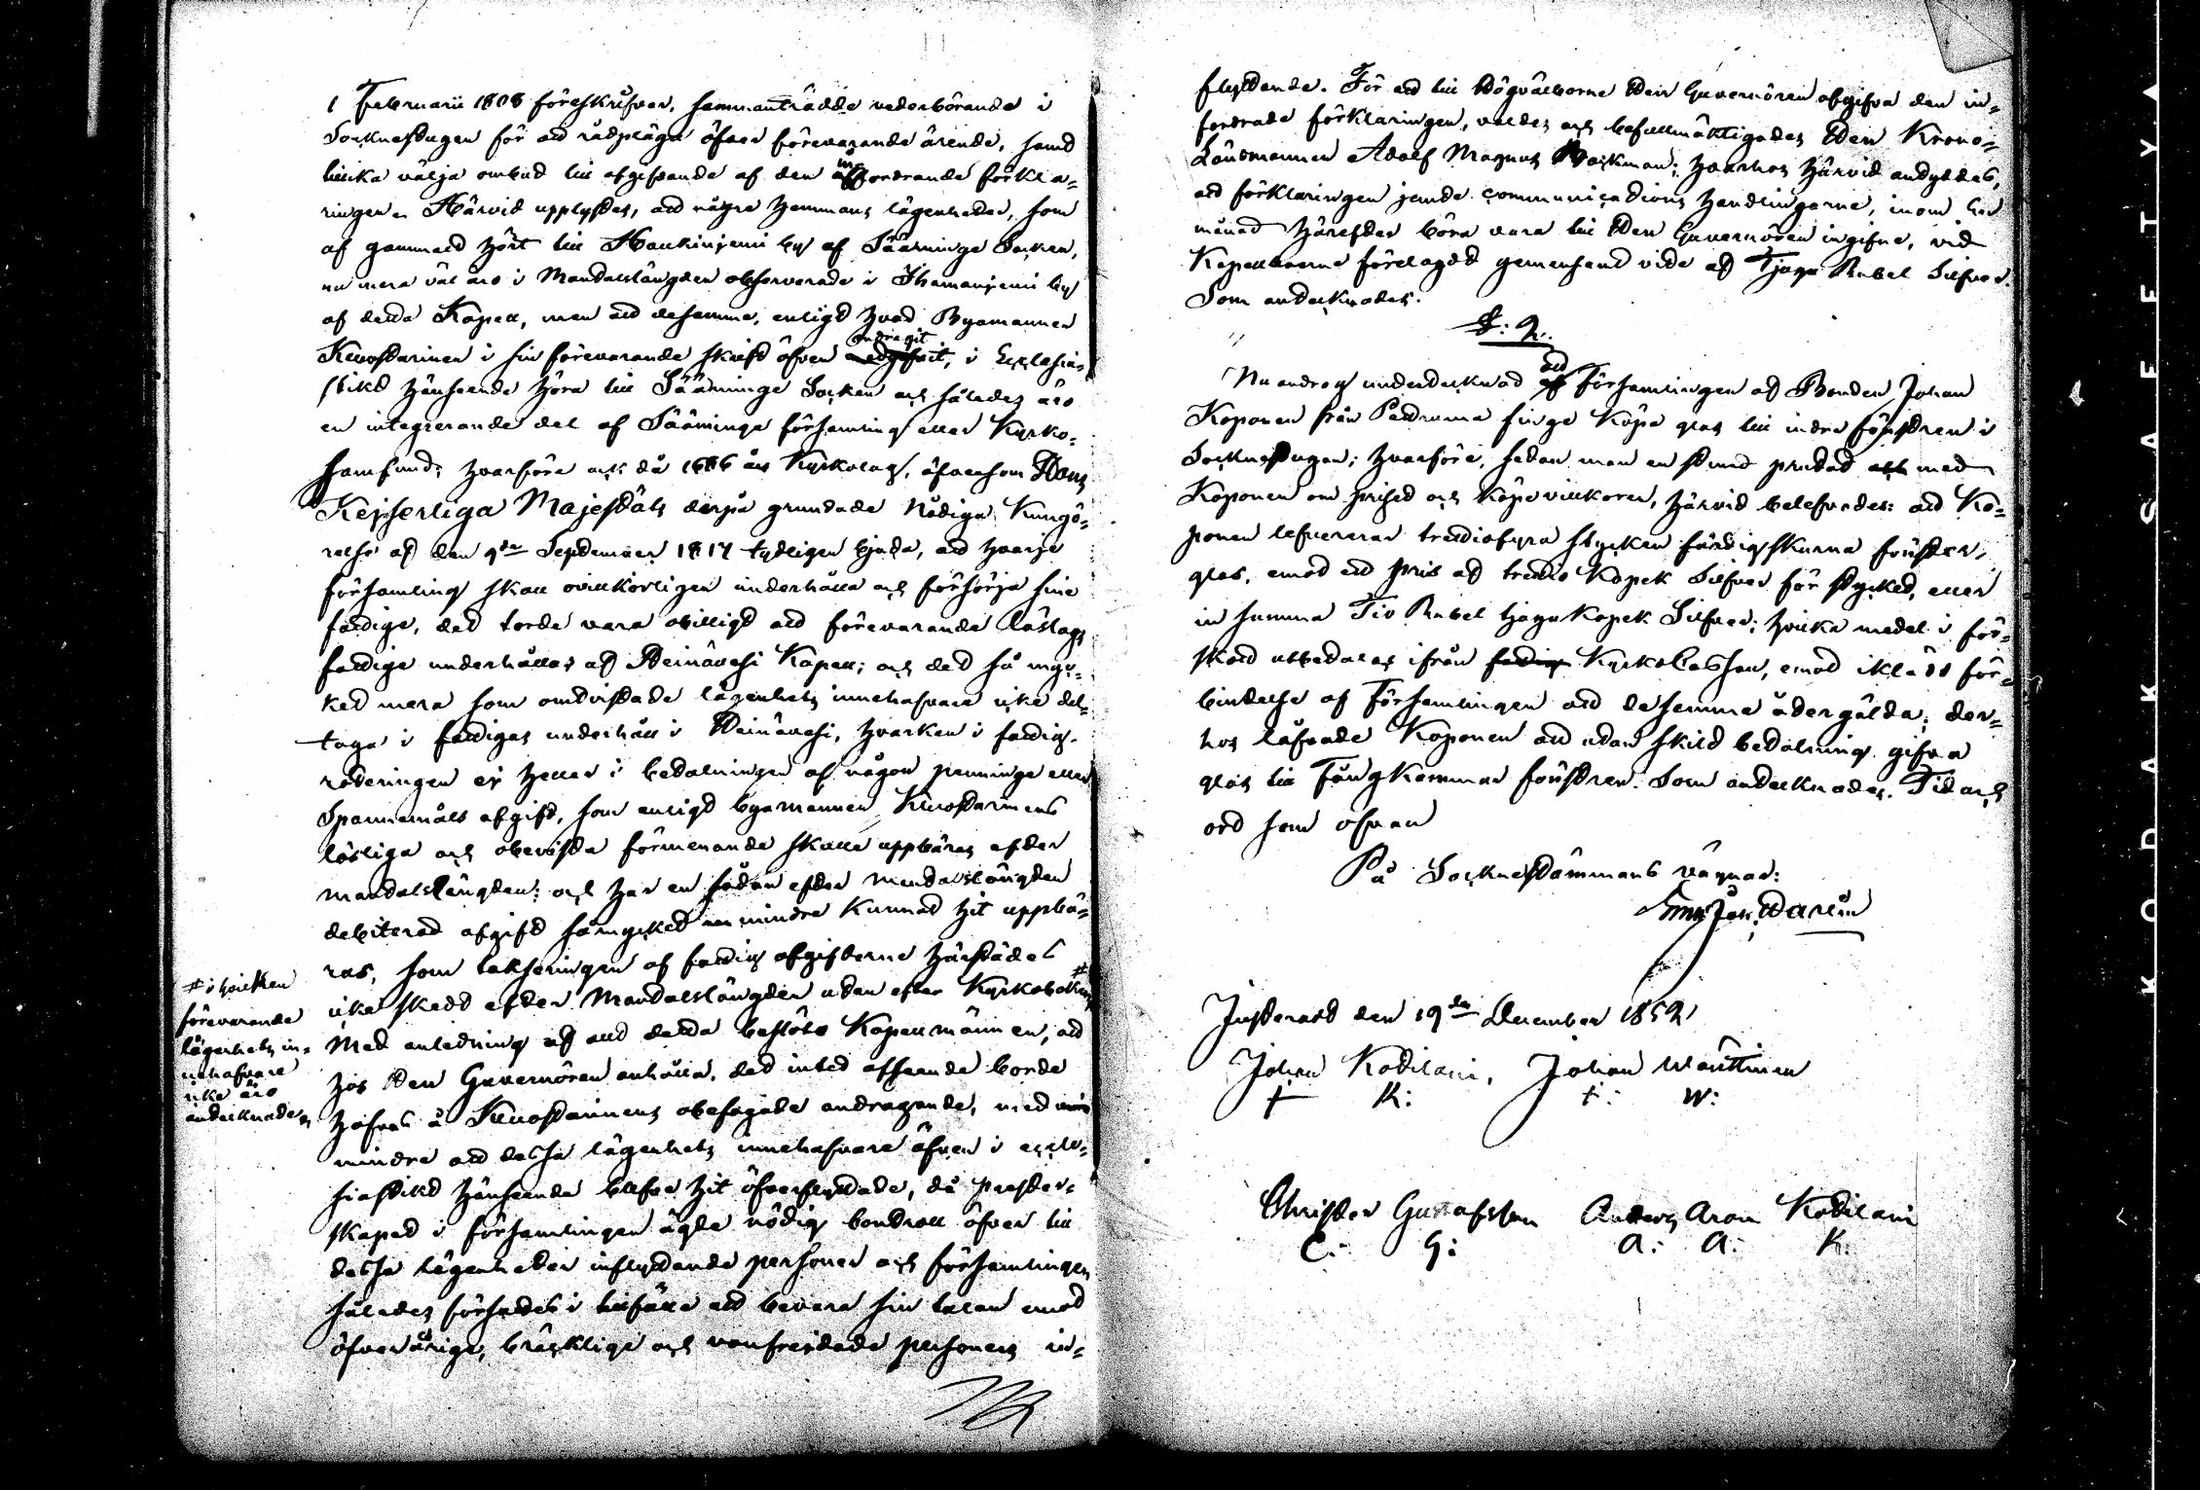 1 Februarii 1808 föreskrifver, sammanträdde vederbörande i
Socknestugan för att rådpläga öfver förevarande ärende, samt
tillika välja ombud till afgifvande af den infordrande förkla-
ringen. Härvid upplystes, att några hemmans lägenheter, som
af gammalt hört till Haukiniemi by af Sääminge Socken,
nu mera väl äro i Mantalslängden observerade i Ihamaniemi by
af detta Kapell, men att desamma, enligt hvad Byamannen
Kuostarinen i sin förevarande skrift äfven andragit, i Ecclesia-
stikt hänseende höra till Sääminge Socken och således äro
en integrerande del af Sääminge församling eller Kyrko-
samfund; hvarföre och då 1686 års Kyrkolag, äfvensom Hans
Kejserliga Majestäts derpå grundade Nådiga Kungö-
relse af den 9de September 1817 tydligen bjuda, att hvarje
församling skall ovillkorligen underhålla och försörja sine
fattige, det torde vara obilligt att förevarande låstags
fattige underhållas af Heinävesi Kapell; och det så myc-
ket mera som omtvistade lägenhets innehafvare icke del-
taga i fattigas underhåll i Heinävesi, hvarken i fattig-
roteringen ej heller i betalningen af någon penninge eller
Spannemåls afgift, som enligt byamannen Kuostarinens
lösliga och obevista förmenande skulle uppbäras efter
mantalslängden: och har en sådan efter mantalslängden
debiterad afgift såmycket mindre kunnat hit uppbä-
ras, som taxeringen af fattig afgifterne härstädes
icke skedt efter Mantalslängden utan efter Kyrkoboken #
# i hvilken
förevarande
lägenhets in-
nehafvare
icke äro
antecknade.
Med anledning af allt detta beslöto Kapellmännen, att
hos Herr Guvernören anhålla, det intet afseende borde
hafvas å Kuostarinens obefogade andragande, med
mindre att dessa lägenhets innehafvare äfven i eccle-
siastikt hänseende blefve hit öfverflyttade, då prester-
skapet i församlingen ägde nödig controll öfver till
dessa lägenheter inflyttande personer och församlingen
således försattes i tillfälle att bevara sin talan emot
öfverårige, bräcklige och vanfrejdade personers in-
flyttande. För att till Högvälborne Herr Guvernören afgifva den in-
fordrade förklaringen, valdes och befullmäktigades Herr Krono-
Länsmannen Adolf Magnus Backman; hvarhos härvid antyddes,
att förklaringen jemte communications handlingarne, inom en
månad härefter böra vara till Herr Guvernören ingifne, vid
Kapellboerne förelagdt gemensamt vite af Tjugu Rubel Silfver.
Som antecknades.
§: 2.
Nu androg undertecknad att Församlingen af Bonden Johan
Koponen från Petruma finge Köpa glas till indre fönstren i
Socknestugan; hvarföre, sedan man en stund prutat med
Koponen om priset och köpevillkoren, härvid belefvades: att Ko-
ponen lefvererar trettiofyra stycken färdigskurna fönster-
glas, emot ett pris af trettio Kopek Silfver för stycket, eller
in summa Tio Rubel tjugu kopek Silfver; hvilka medel i för-
skott utbetalas ifrån Kyrkokassan, emot iklädd för-
bindelse af Församlingen att desamma återgälda; der-
hos låfvade Koponen att utan skild betalning gifva
glas till Fångkammar fönstren. Som antecknades. Tid och
ort som ofvan
På Sockenstämmans vägnar:
Justeradt den 19de December 1852
Johan Kotilain, Johan Wänttinen
+ K: +: W:
Christer Gustafsson Anders Aron Kotilain
C: G: A: A: K:
KODAK SAFETY